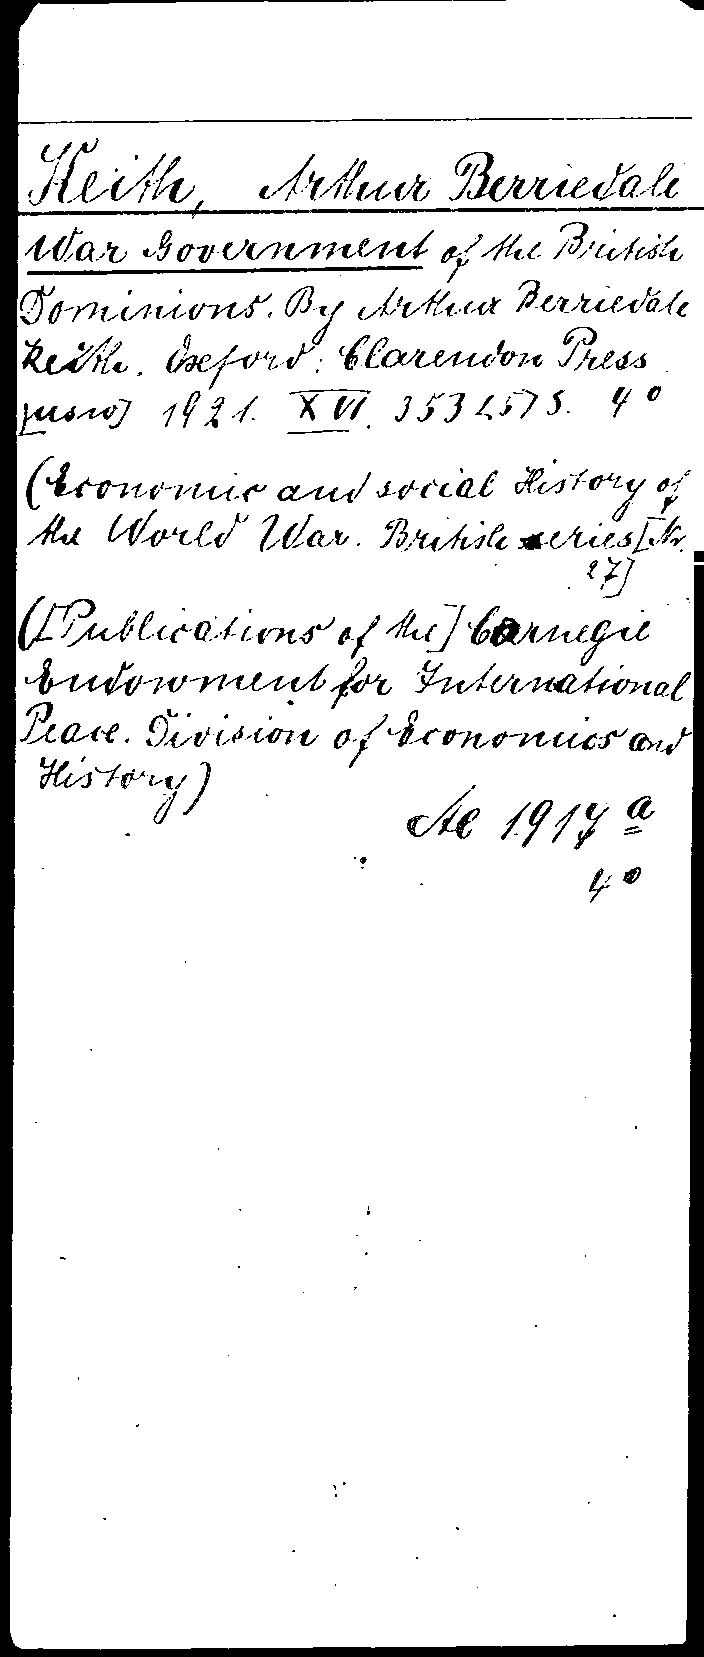 Keith, Arthur Berriedale
War Government of the British
Dominions. By Arthur Berriedale
Keith. Oxford: Clarendon Press
[usw] 1921. XVI. 353 S. 4°
(Economic and social History of
the World War. British series [Nr.
27]
([Publications of the] Carnegie
Endowment for International
Peace. Division of Economics and
History)
Ae 1917 a
4°